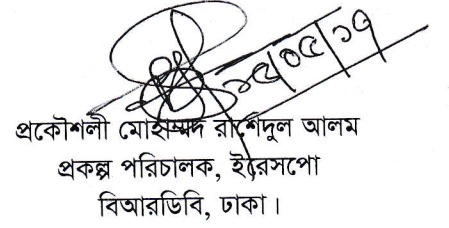 ২৫/০৫/১৭
প্রকৌশলী মোহাম্মদ রাশেদুল আলম
প্রকল্প পরিচালক, ইরেসপো
বিআরডিবি, ঢাকা।